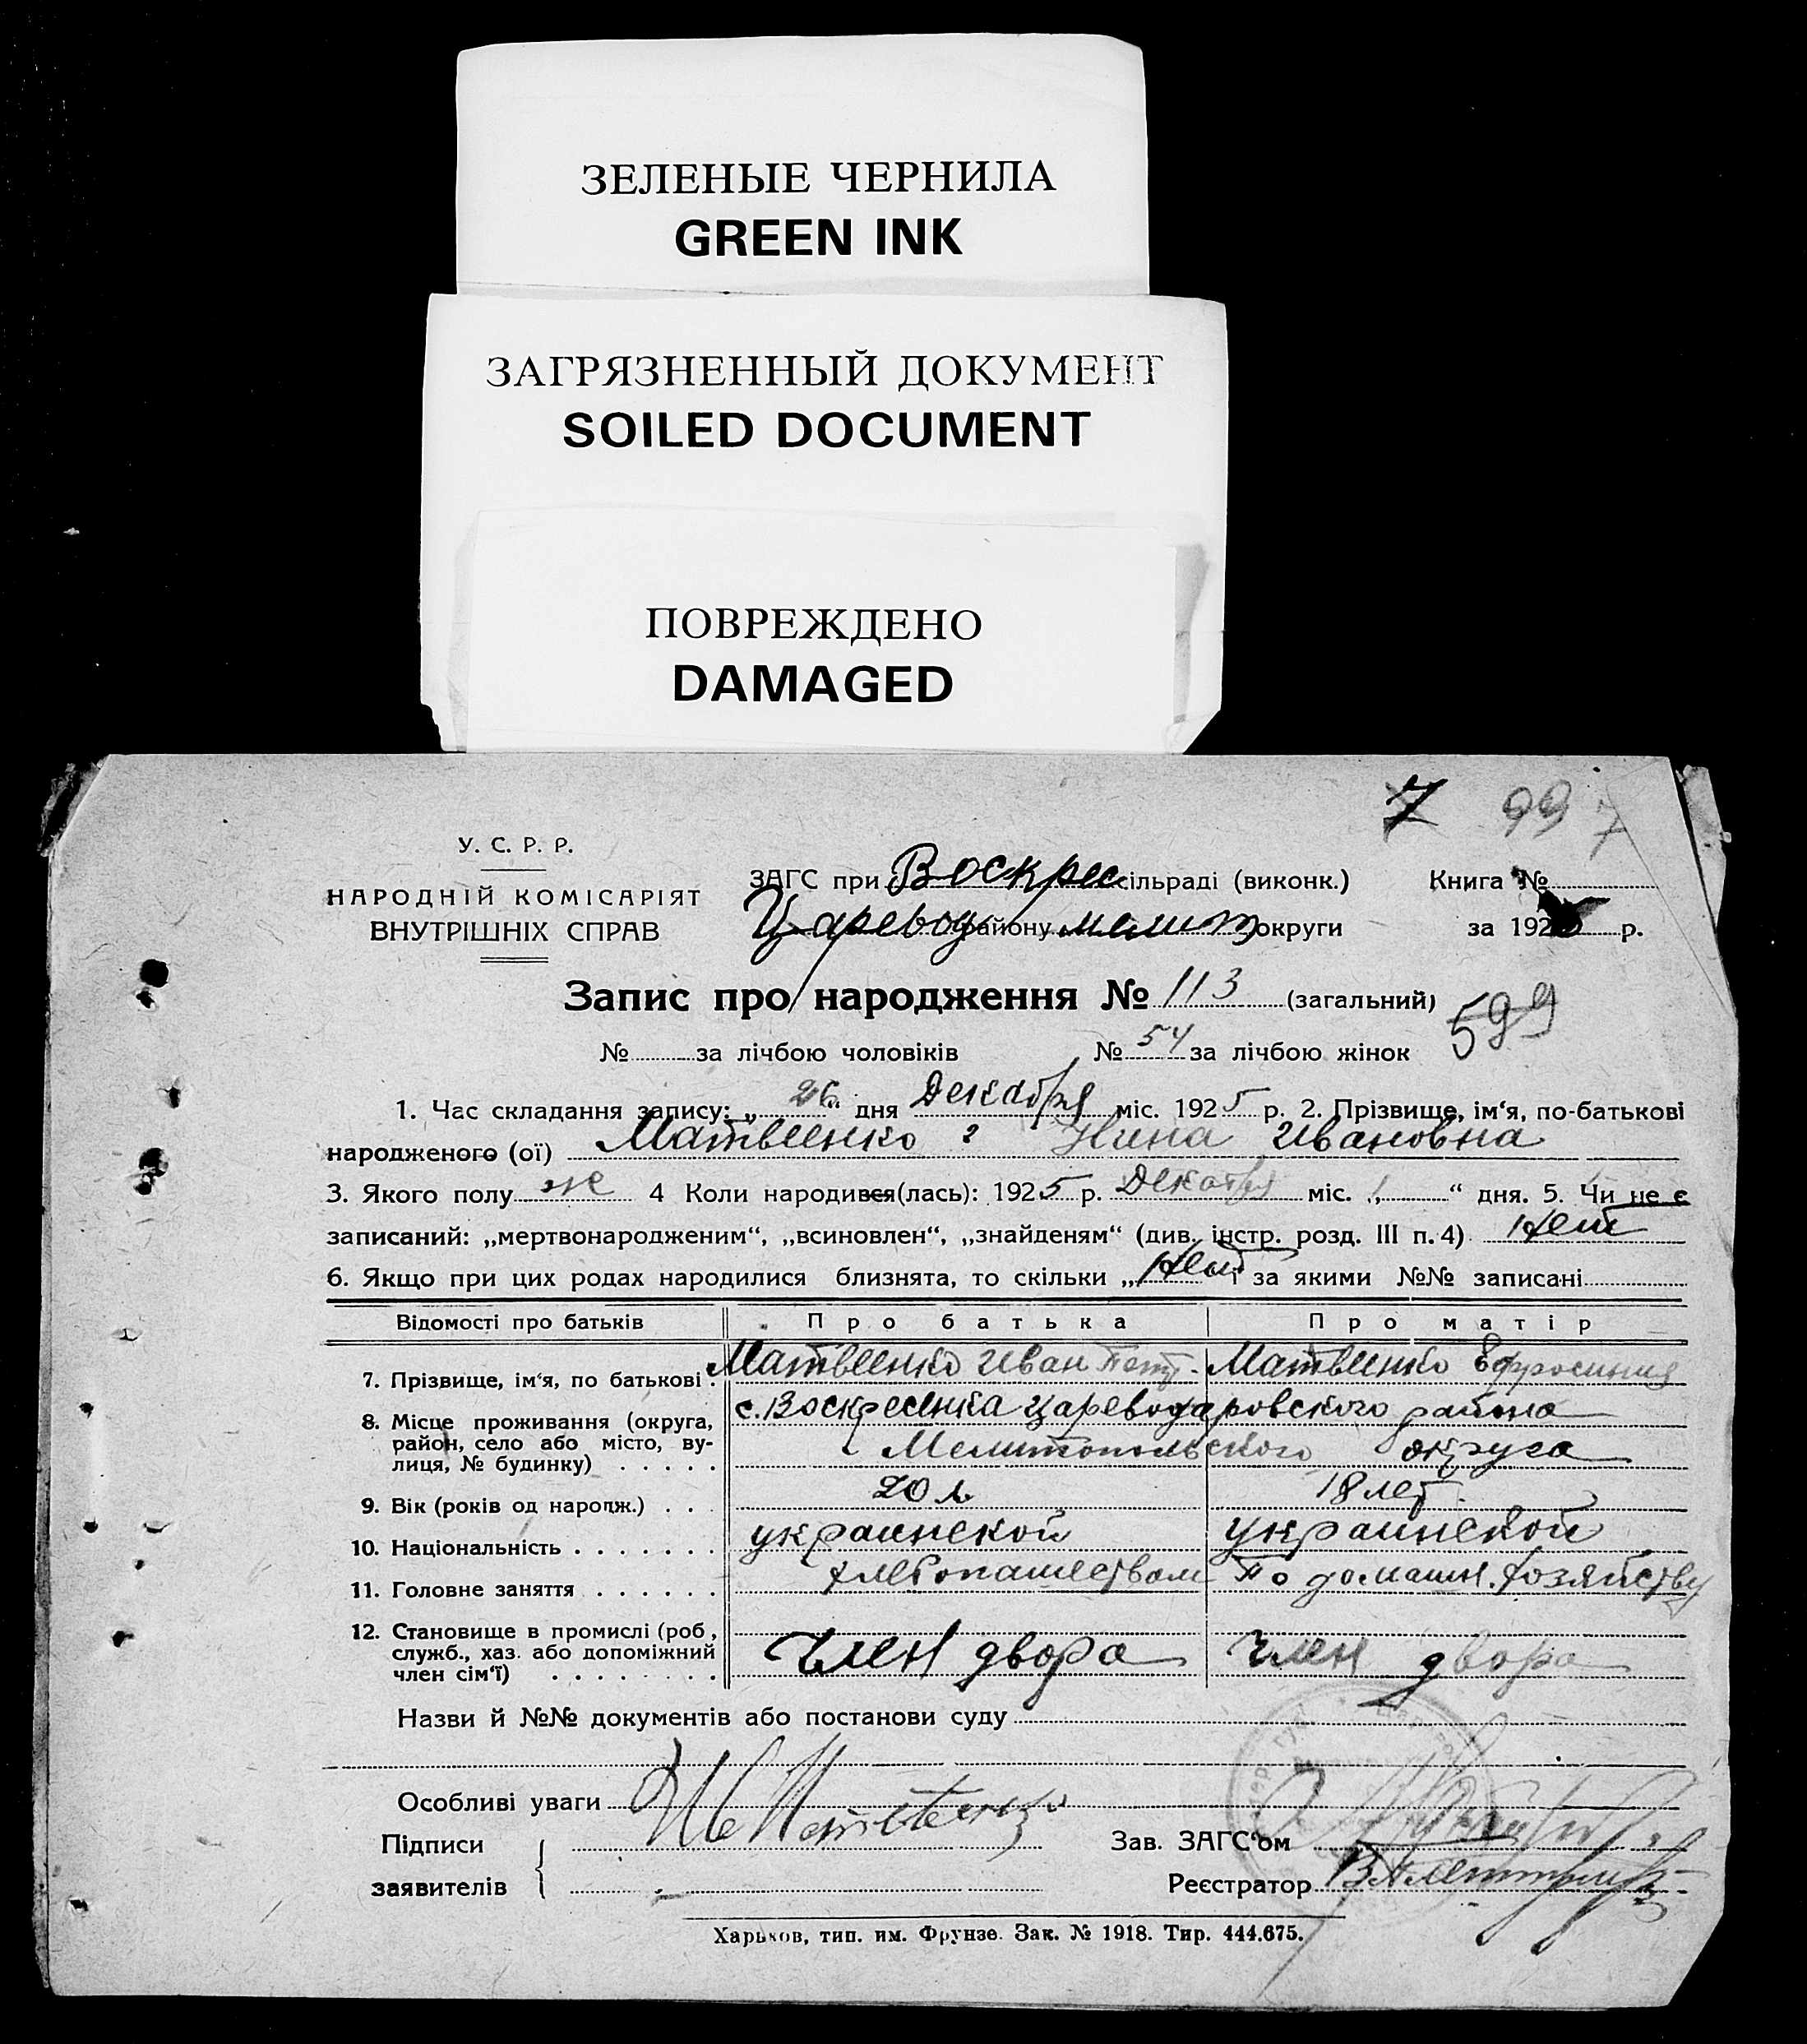 ЗЕЛЕНЫЕ ЧЕРНИЛА
GREEN INK
ЗАГРЯЗНЕННЫЙ ДОКУМЕНТ
SOILED DOCUMENT
ПОВРЕЖДЕНО
DAMAGED
7 99 7
У. С. Р. Р.
НАРОДНІЙ КОМІСАРІЯТ
ВНУТРІШНІХ СПРАВ
ЗАГС при Воскрес сільраді (виконк.) Книга №
Царевод району мелит округи за 192 р.
Запис про народження № 113 (загальний)
599
№ за лічбою чоловіків № 54 за лічбою жінок
1. Час складання запису: „ 26 “ дня Декабря міс. 1925 р. 2. Прізвище, ім‘я, по-батькові
народженого (ої) Матвиенко Нина Ивановна
3. Якого полу же 4 Коли народився(лась): 1925 р. Декабря міс. „ 1 “ дня. 5. Чи не є
записаний: „мертвонародженим“, „всиновлен“, „знайденям“ (див. інстр. розд. III п. 4) Нет
6. Якщо при цих родах народилися близнята, то скільки „ Нет і за якими №№ записані
Відомості про батьків Про батька Про матір
7. Прізвище, ім‘я, по батькові. Матвиенко Иван Петр. Матвиенко Ефросиния
8. Місце проживання (округа, район, село або місто, вулиця, № будинку) с. Воскресенка Цареводаровского района
Мелитопольского округа
9. Вік (років од народж.) 20 л 18 лет.
10. Національність украинской украинской
11. Головне заняття хлебопашеством По домашн. хозяйству
12. Становище в промислі (роб, служб., хаз. або допоміжний член сім‘ї) Член двора Член двора
Назви й №№ документів або постанови суду
Особливі уваги
Підписи
заявителів
Зав. ЗАГС‘ом
Реєстратор
Харьков, тип. им. Фрунзе. Зак. № 1918. Тир. 444.675.